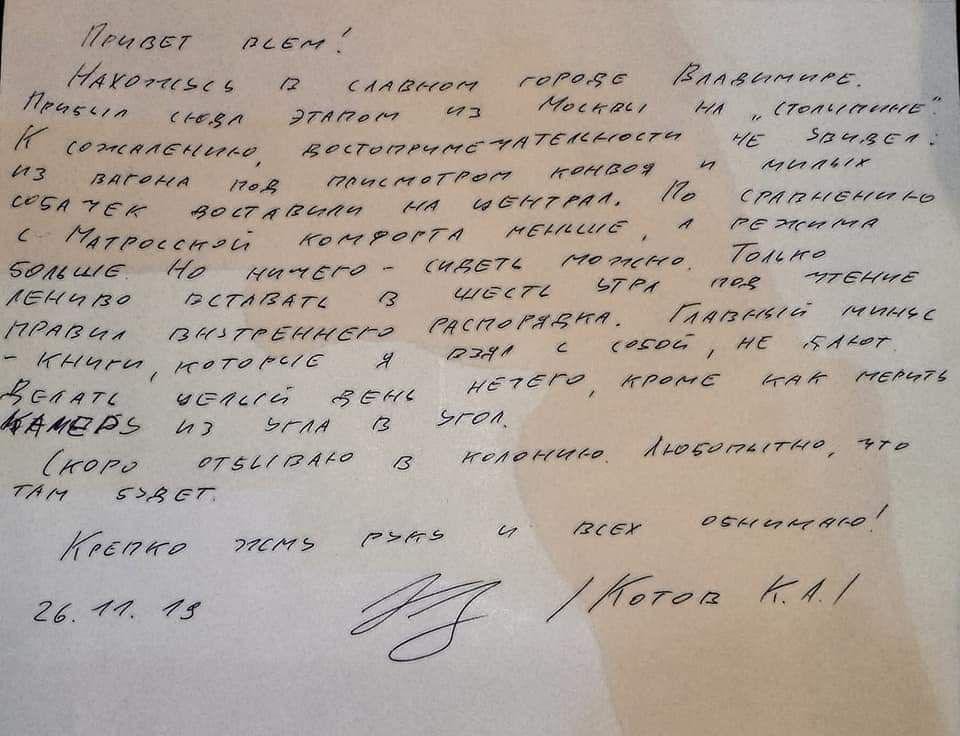 Привет всем!
Нахожусь в славном городе Владимире.
Прибыл сюда этапом из Москвы на „столыпине".
К сожалению, достопримечательности не увидел:
из вагона под присмотром конвоя и милых
собачек доставили на централ. По сравнению
с Матросской комфорта меньше, а режима
больше. Но ничего - сидеть можно. Только
лениво вставать в шесть утра под чтение
правил внутреннего распорядка. Главный минус
- книги, которые я взял с собой, не дают.
Делать целый день нечего, кроме как мерить
камеру из угла в угол.
Скоро отбываю в колонию. Любопытно, что
там будет.
Крепко жму руку и всех обнимаю!
26.11.19 /Котов К.А./